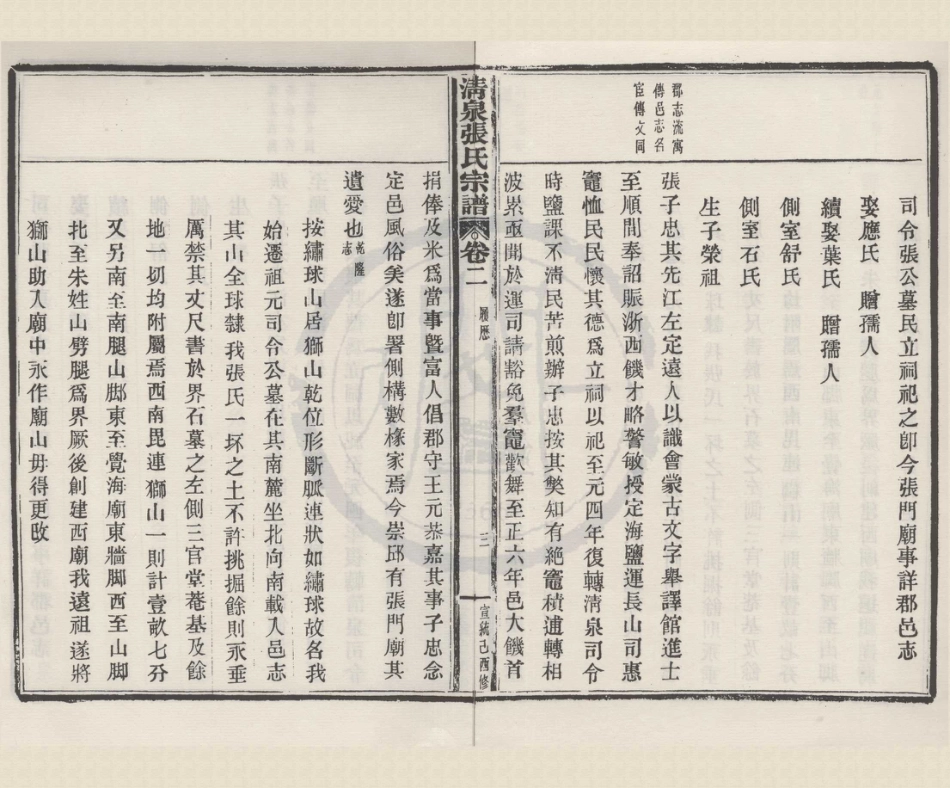 司令張公墓民立祠祀之卽今張門廟事詳郡邑志
娶應氏　贈孺人
續娶葉氏　贈孺人
側室舒氏
側室石氏
生子榮祖
郡志流寓
傳邑志名
宦傳文同
張子忠其先江左定遠人以識會蒙古文字舉譯館進士
至順間奉詔賑浙西饑才略警敏授定海鹽運長山司惠
竈恤民民懷其德爲立祠以祀至元四年復轉淸泉司令
時鹽課不淸民苦煎辦子忠按其獘知有絕竈積逋轉相
波累亟聞於運司請豁免羣竈歡舞至正六年邑大饑首
淸泉張氏宗譜　卷二　履歷　三　宣統己酉修
捐俸及米爲當事曁富人倡郡守王元恭嘉其事子忠念
定邑風俗美遂卽署側構數椽家焉今崇邱有張門廟其
遺愛也
按繡球山居獅山乾位形斷脈連狀如繡球故名我
始遷祖元司令公墓在其南麓坐北向南載入邑志
其山全球隸我張氏一坏之土不許挑掘餘則永垂
厲禁其丈尺書於界石墓之左側三官堂菴基及餘
地一切均附屬焉西南毘連獅山一則計壹畝七分
又另南至南腿山脚東至覺海廟東牆脚西至山脚
北至朱姓山劈腿爲界厥後創建西廟我遠祖遂將
獅山助入廟中永作廟山毋得更改